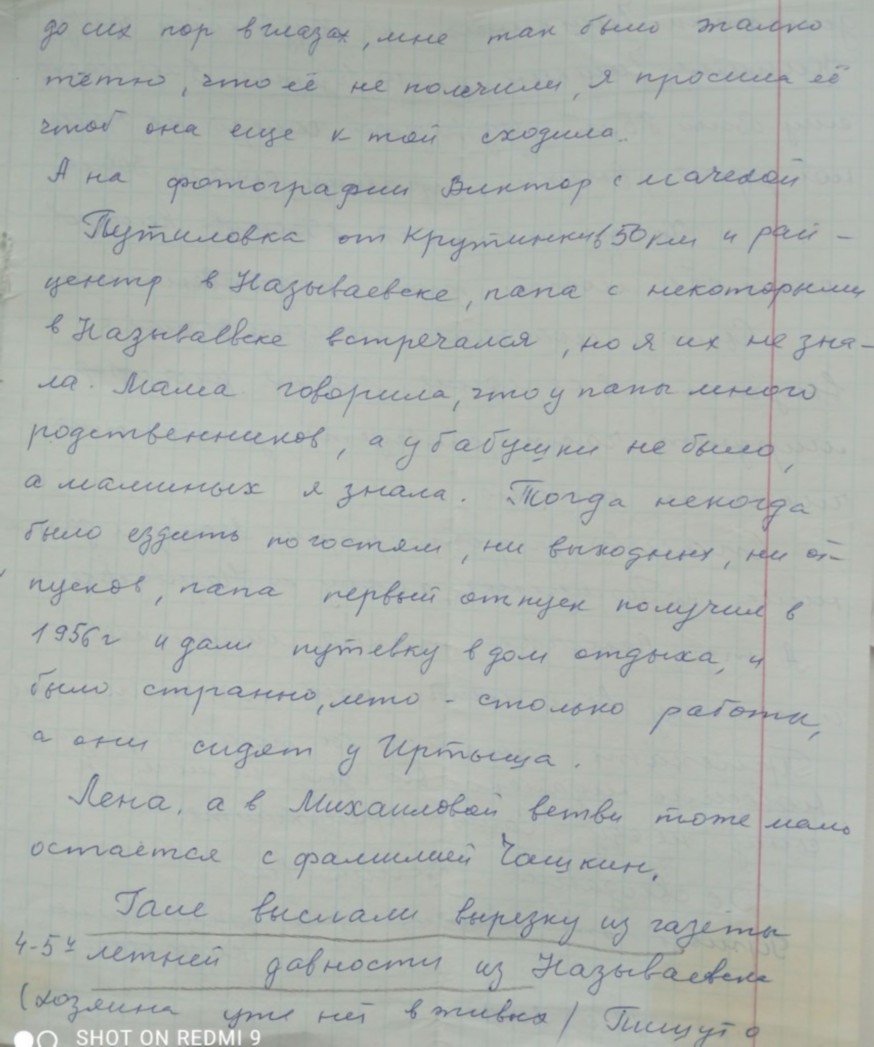 до сих пор в глазах, мне так было жалко
тётю, что её не полечили, я просила её
чтоб она еще к той сходила..
А на фотографии Виктор с мачехой
Путиловка от Крутинки в 50 км и рай-
центр в Называевске, папа с некоторыми
в Называевске встречался, но я их не зна-
ла. Мама говорила, что у папы много
родственников, а у бабушки не было,
а маминых я знала. Тогда некогда
было ездить по гостям, ни выходных, ни от-
пусков, папа первый отпуск получил в
1956 г и дали путевку в дом отдыха, и
было странно, лето - столько работы,
а они сидят у Иртыша.
Лена, а в Михаиловой ветви тоже мало
остаётся с фамилией Чашкин.
Гале выслали вырезку из газеты
4-5и летней давности из Называевска
(хозяина уже нет в живых) Пишут о
SHOT ON REDMI 9